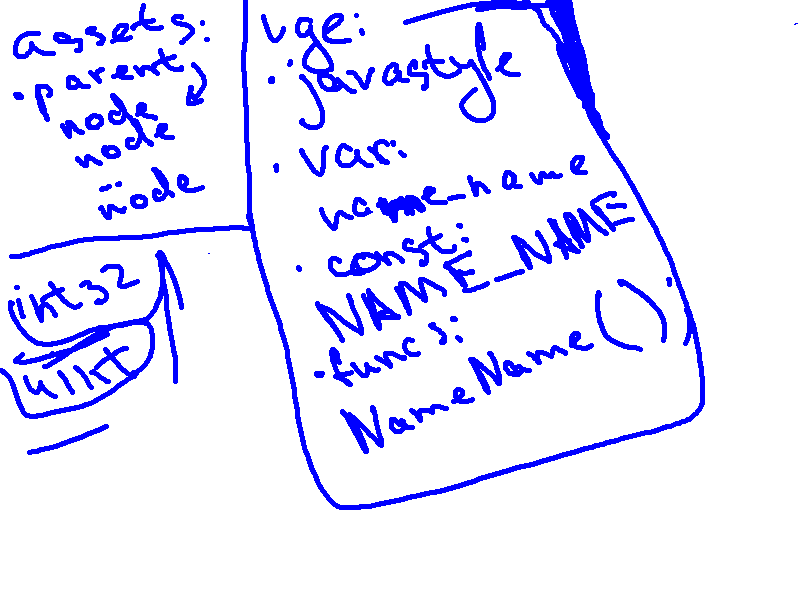 assets:
·parent
node
node
node
int32
uint
vge:
·javastyle
·var:
name_name
·const:
NAME_NAME
·funcs:
NameName()